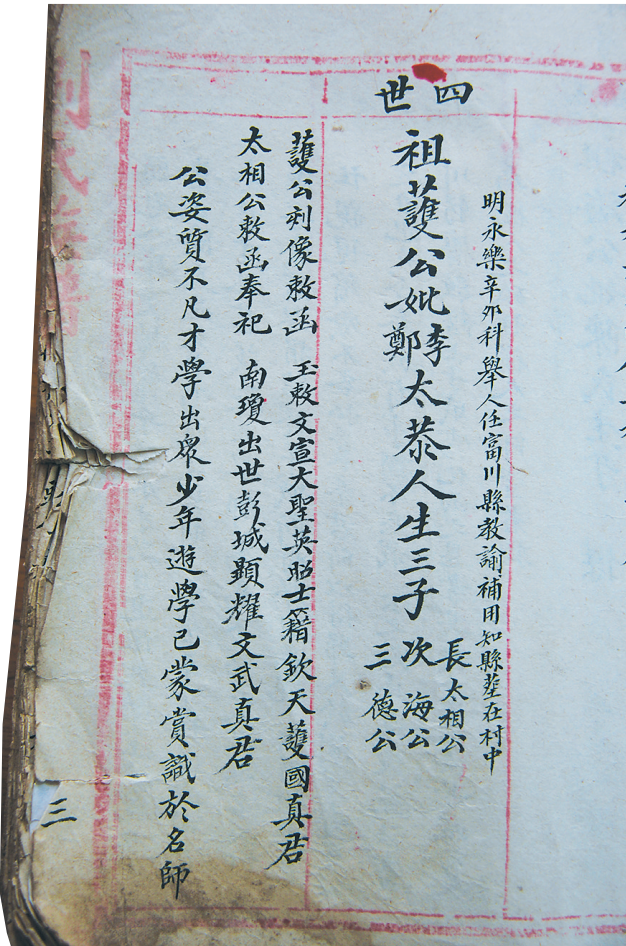 四世
明永樂辛卯科舉人任富川縣教諭補用知縣塟在村中
祖蘐公妣李鄭太恭人生三子
長太相公
次海公
三德公
蘐公刻像敕函 玉敕文宣大聖英昭士籍欽天蘐國真君
太相公敕函奉祀 南瓊出世彭城顯耀文武真君
公姿質不凡才學出眾少年遊學已蒙賞識於名師
三